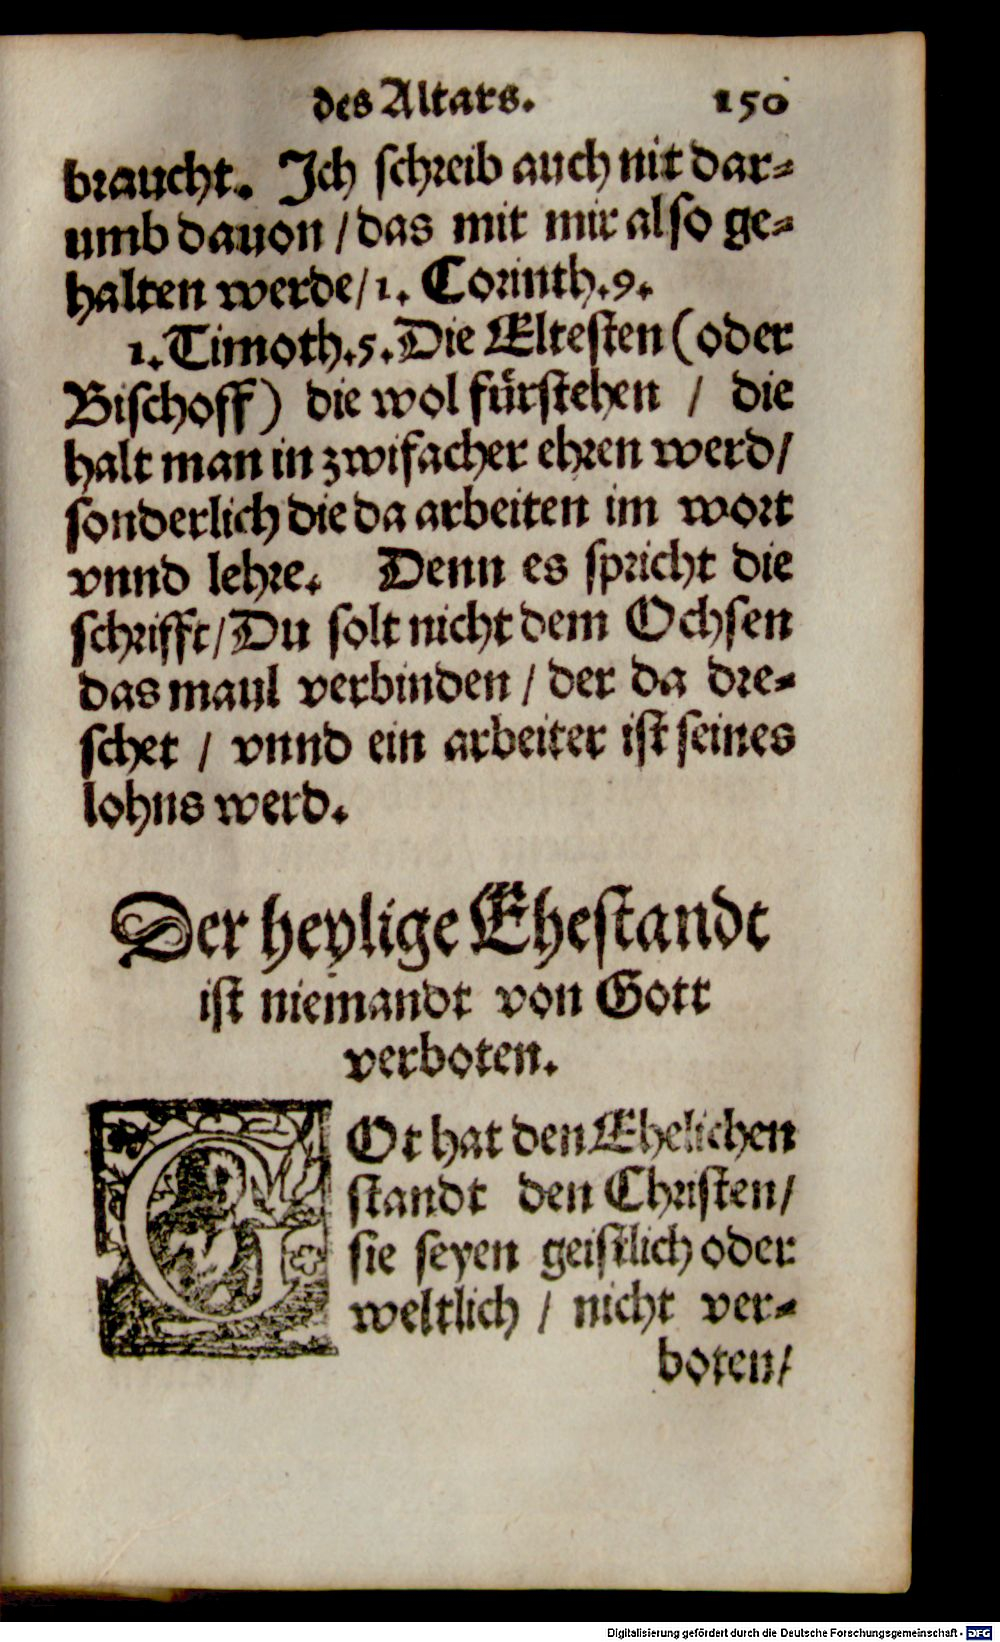 des Altars. 150
braucht. Ich schreib auch nit dar-
umb dauon / das mit mir also ge-
halten werde / 1. Corinth. 9.
1. Timoth. 5. Die Eltesten (oder
Bischoff) die wol fürstehen / die
halt man in zwifacher ehren werd /
sonderlich die da arbeiten im wort
vnnd lehre. Denn es spricht die
schrifft / Du solt nicht dem Ochsen
das maul verbinden / der da dre-
schet / vnnd ein arbeiter ist seines
lohns werd.
Der heylige Ehestandt
ist niemandt von Gott
verboten.
GOt hat den Ehelichen
standt den Christen /
sie seyen geistlich oder
weltlich / nicht ver-
boten /
Digitalisierung gefördert durch die Deutsche Forschungsgemeinschaft - DFG